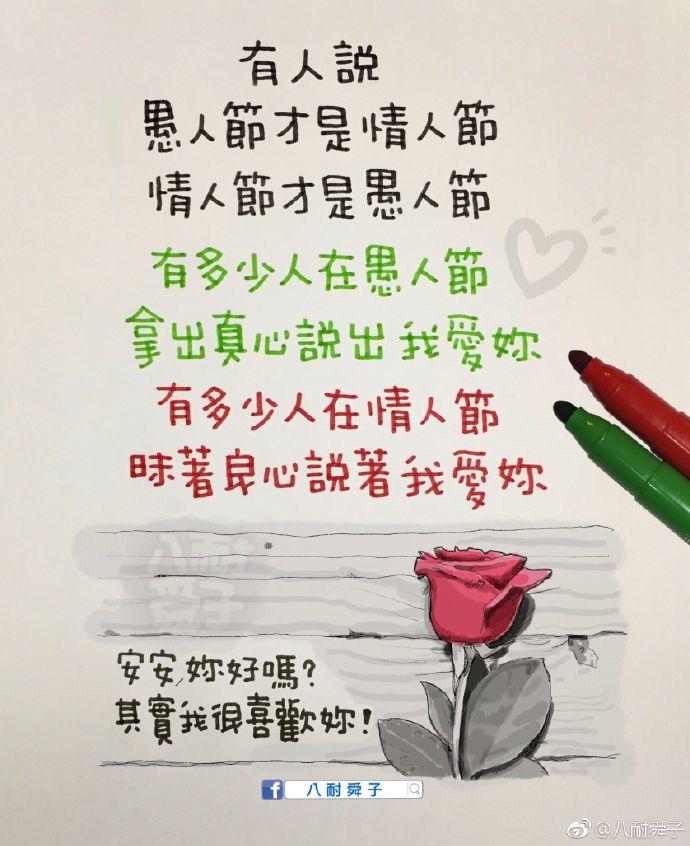 有人說
愚人節才是情人節
情人節才是愚人節
有多少人在愚人節
拿出真心說出我愛妳
有多少人在情人節
昧著良心說著我愛妳
八耐
舜子
安安,妳好嗎?
其實我很喜歡妳!
f 八耐舜子
@八耐舜子